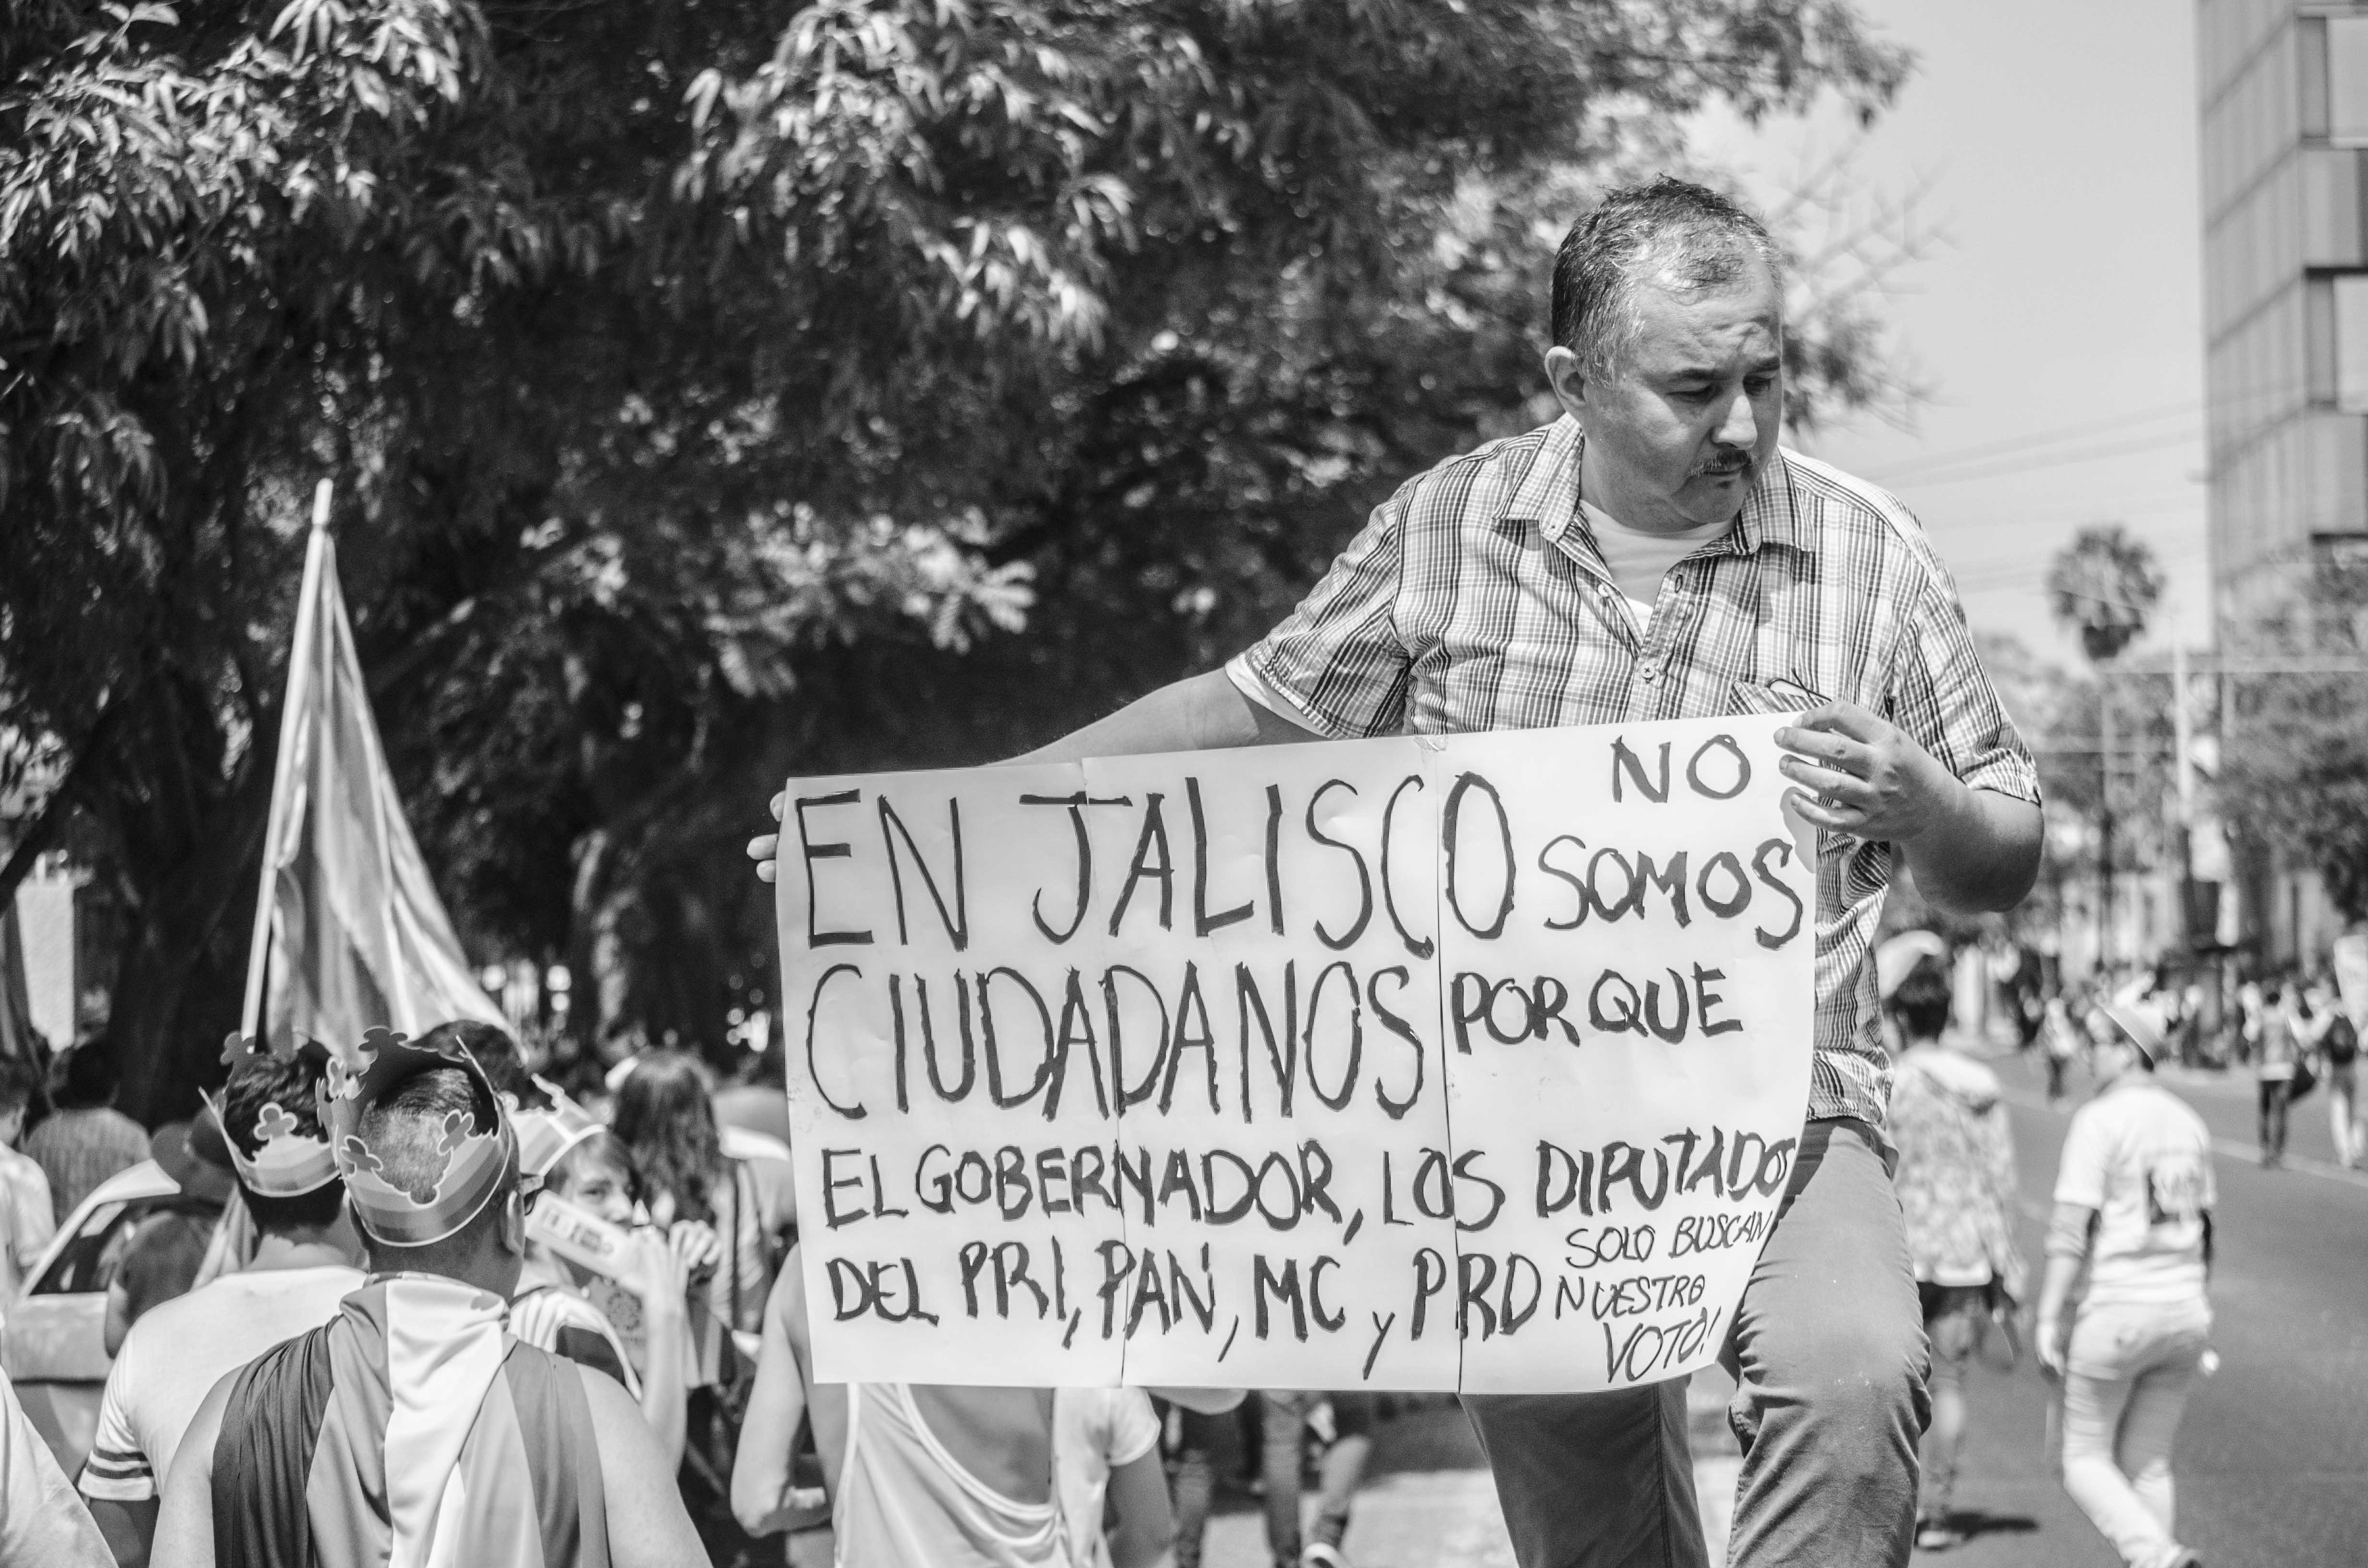 EN JALISCO NO SOMOS
CIUDADANOS POR QUE
EL GOBERNADOR, LOS DIPUTADOS
DEL PRI, PAN, MC y PRD SOLO BUSCAN
NUESTRO
VOTO!